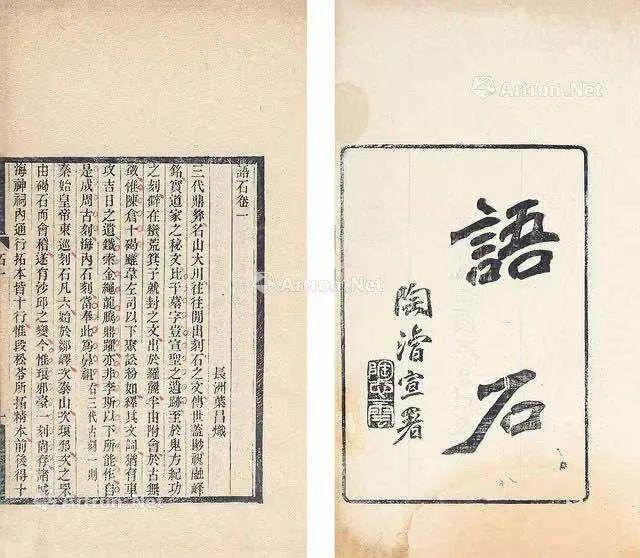 語石
陶濬宣署
陶心雲
語石卷一
長洲葉昌熾
三代鼎彝名山大川往往閒出刻石之文傳世蓋尠祝融峰
銘實道家之祕文比干墓字豈宣聖之遺跡至於鬼方紀功
之刻碑在蠻荒箕子就封之文出於羅麗半由附會於古無
徵惟陳倉十碣雖韋左司以下聚訟紛如繹其文詞猶有車
攻吉日之遺鐵索金繩龍騰鼎躍亦非李斯以下所能作自
是成周古刻海內石刻當奉此為鼻祖 右三代古刻一則
秦始皇帝東巡刻石凡六始於鄒嶧次泰山次琅邪次之罘
由碣石而會稽遂有沙邱之變今惟琅邪臺一刻尚存諸城
海神祠內通行拓本皆十行惟段松苓所拓精本前後得十
Artron.Net
Artron.Net